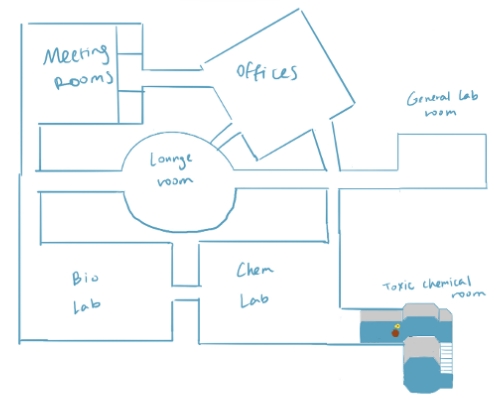 Meeting
Rooms
Offices
General Lab
room
Lounge
room
Bio
Lab
Chem
Lab
Toxic chemical
room